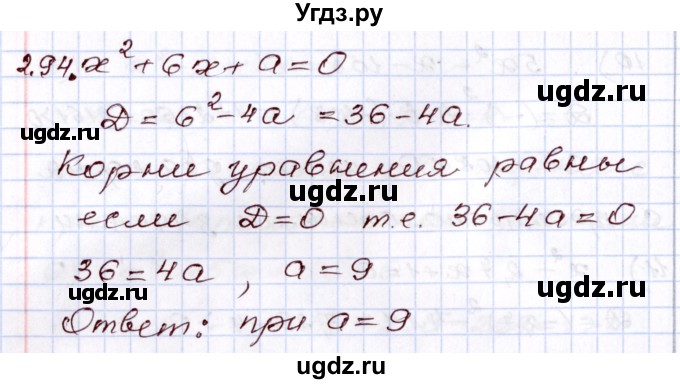 Угдз.ру
2.94. x² + 6x + a = 0
Д = 6² - 4a = 36 - 4a.
Корни уравнения равны
если Д = 0 т.е. 36 - 4a = 0
36 = 4a, a = 9
Ответ: при a = 9
ugdz.ru
ugdz.ru
ugdz.ru
ugdz.ru
ugdz.ru
ugdz.ru
ugdz.ru
ugdz.ru